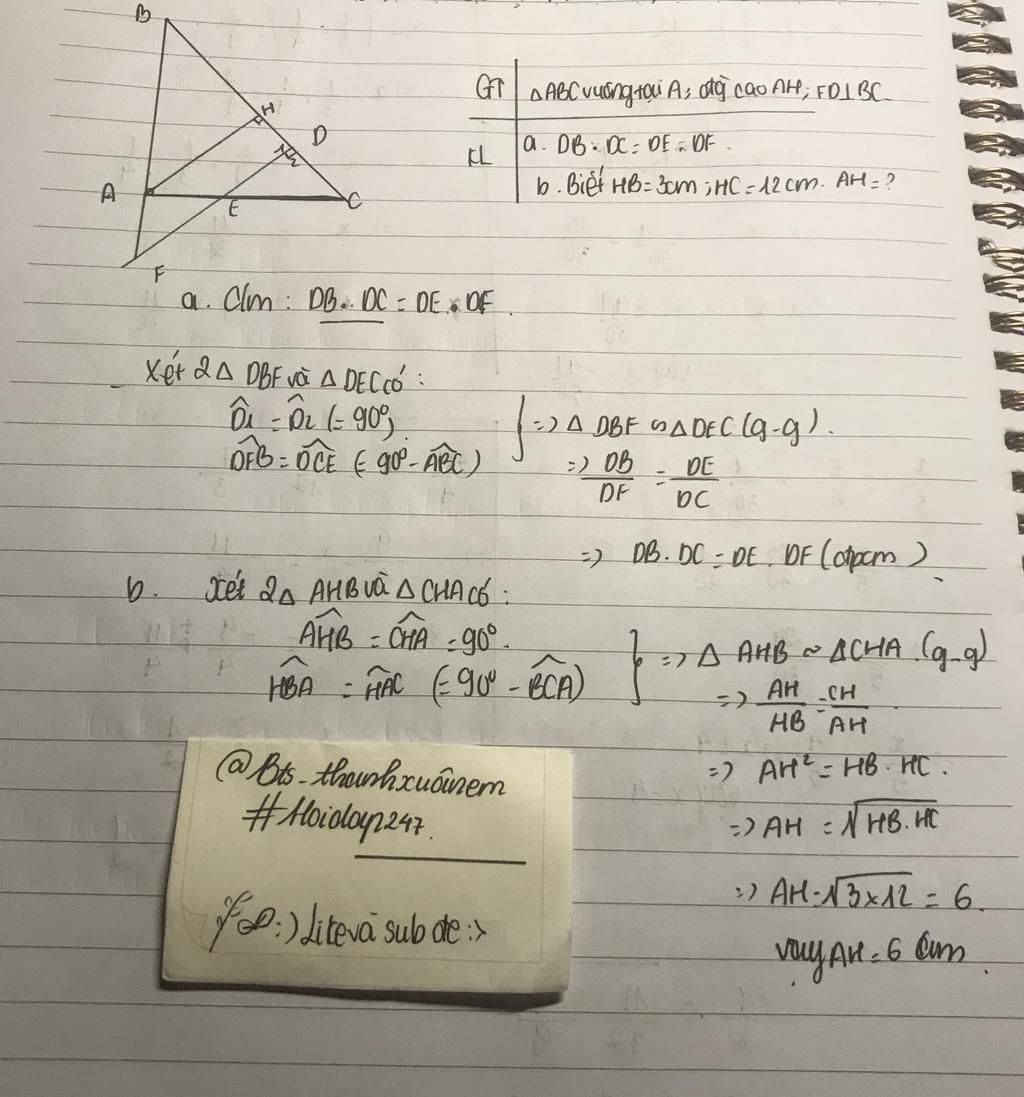 B
H
D
A
E
C
F
GT
△ABC vuông tại A; đg cao AH; FD⊥BC
KL
a. DB . DC = DE . DF.
b. Biết HB = 3cm; HC = 12 cm. AH = ?
a. C/m : DB . DC = DE . DF.
Xét 2△ DBF và △ DEC có :
D̂1 = D̂2 (= 90°)
DFB = DCE (= 90° - ABC)
=> △ DBF ∽ △DEC (g-g).
=> DB/DF = DE/DC
=> DB . DC = DE . DF (đpcm)
b. Xét 2△ AHB và △ CHA có :
AHB = CHA = 90°.
HBA = HAC (= 90° - BCA)
=> △ AHB ~ △CHA . (g-g)
=> AH/HB = CH/AH
=> AH² = HB . HC.
=> AH = √HB.HC
=> AH = √3x12 = 6.
vậy AH = 6 cm.
@Bts_thanhxuânem
#Hoidap247.
:) Like và sub đe :>